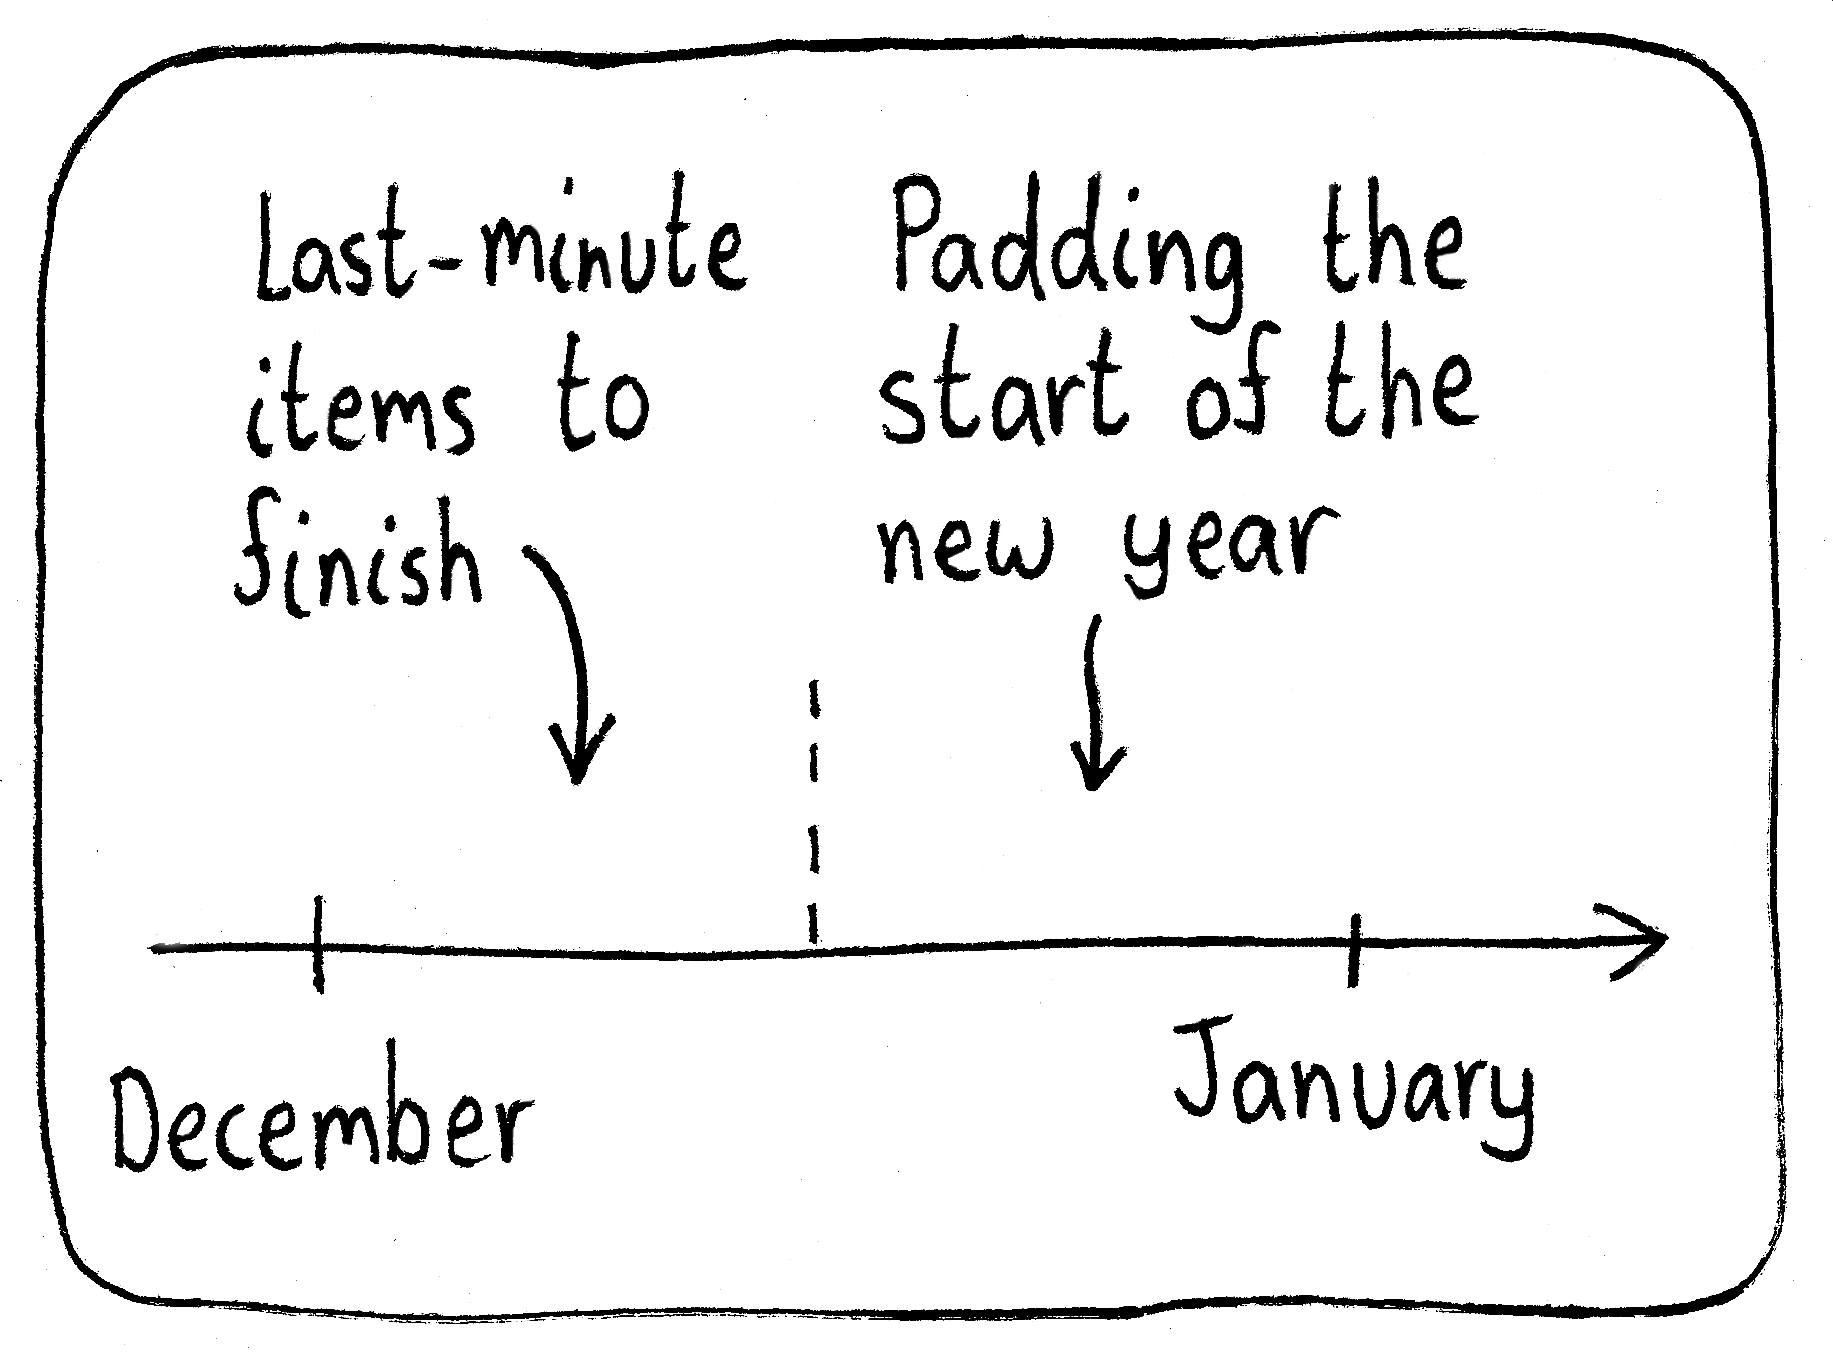 Last-minute
items to
finish
Padding the
start of the
new year
December
January